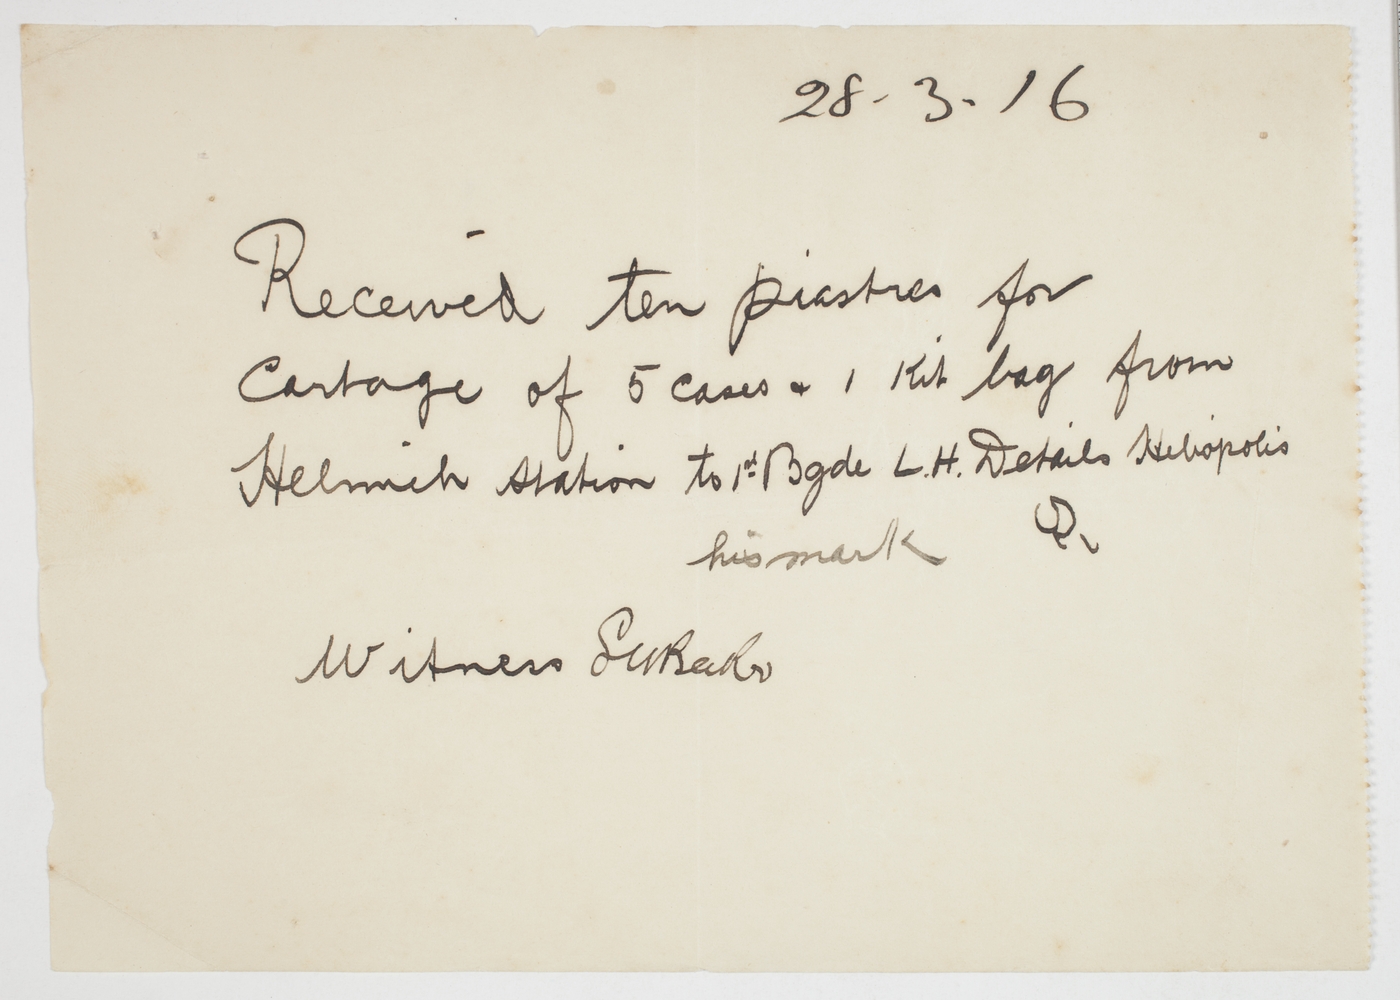 28-3-16
Received ten piastres for
Cartage of 5 cases & 1 Kit bag from
Helmieh Station to 1st Bgde L.H. Details Heliopolis
his mark
Witness